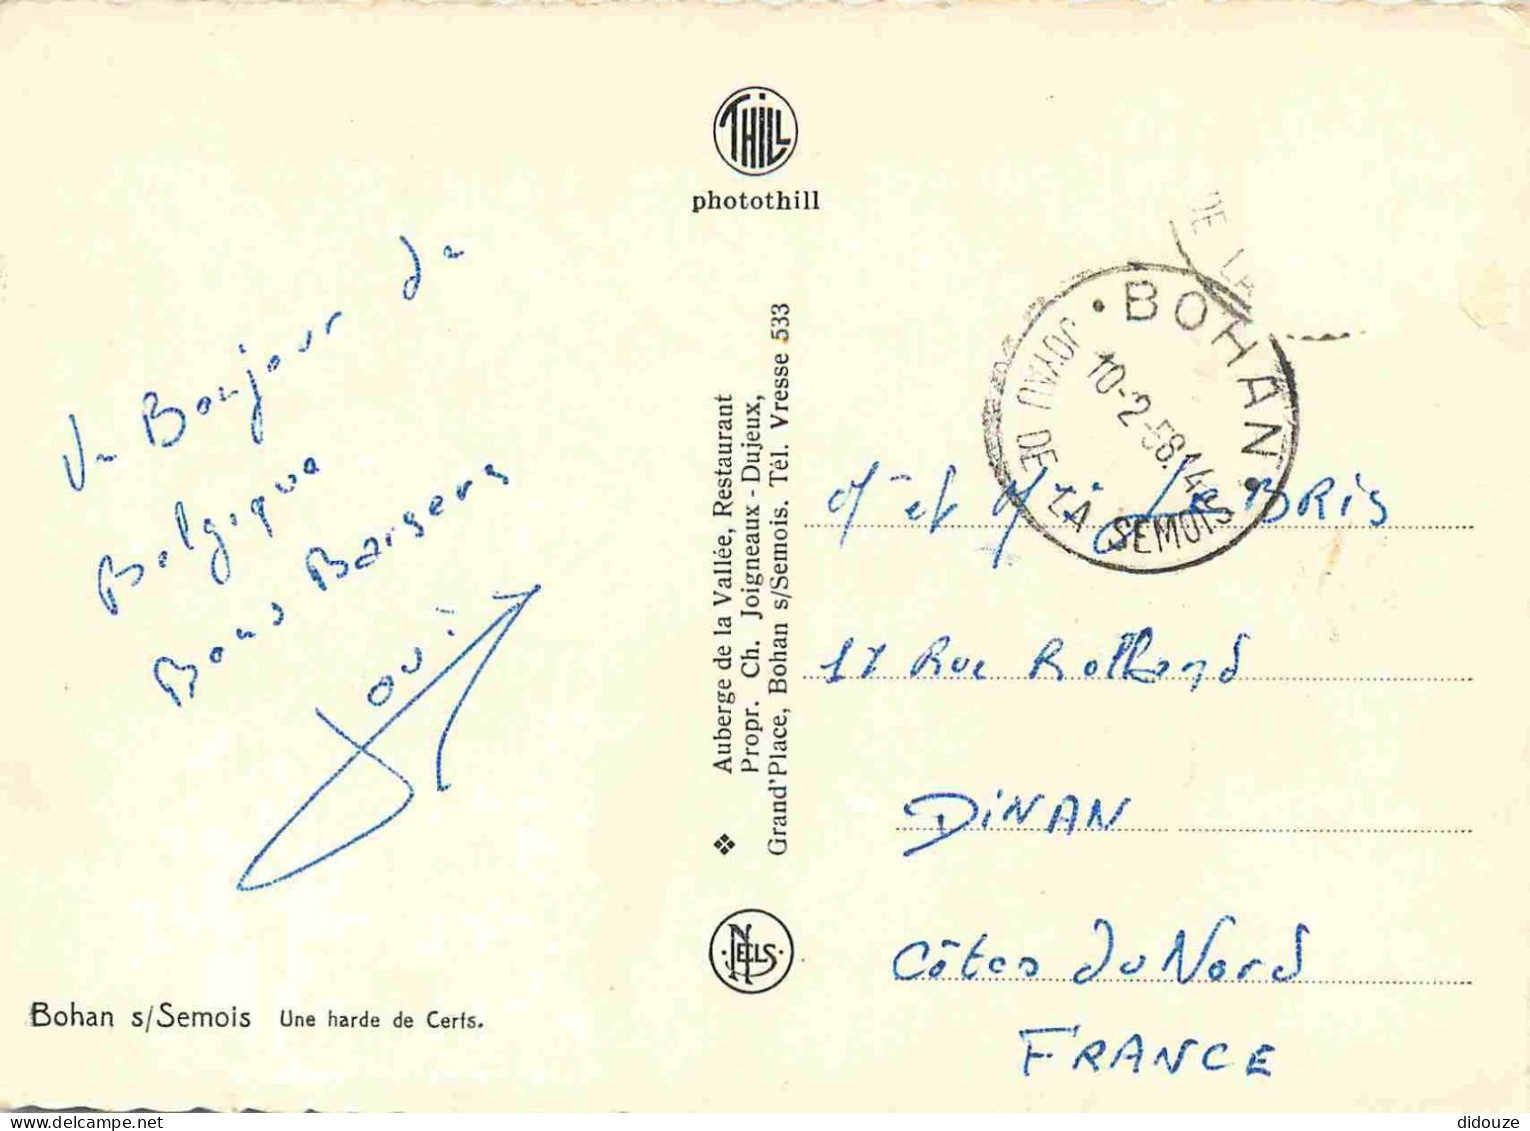 THILL
photothill
Un Bonjour de
Belgique
Bons Baisers
BOHAN
10-2-58.14
JOYAU DE LA SEMOIS
DE LA
Auberge de la Vallée, Restaurant
Propr. Ch. Joigneaux - Dujeux,
Grand'Place, Bohan s/Semois. Tél. Vresse 533
Mr et Me Le BRIS
17 Rue Rolland
DiNAN
Côtes du Nord
FRANCE
NELS
Bohan s/Semois Une harde de Cerfs.
didouze